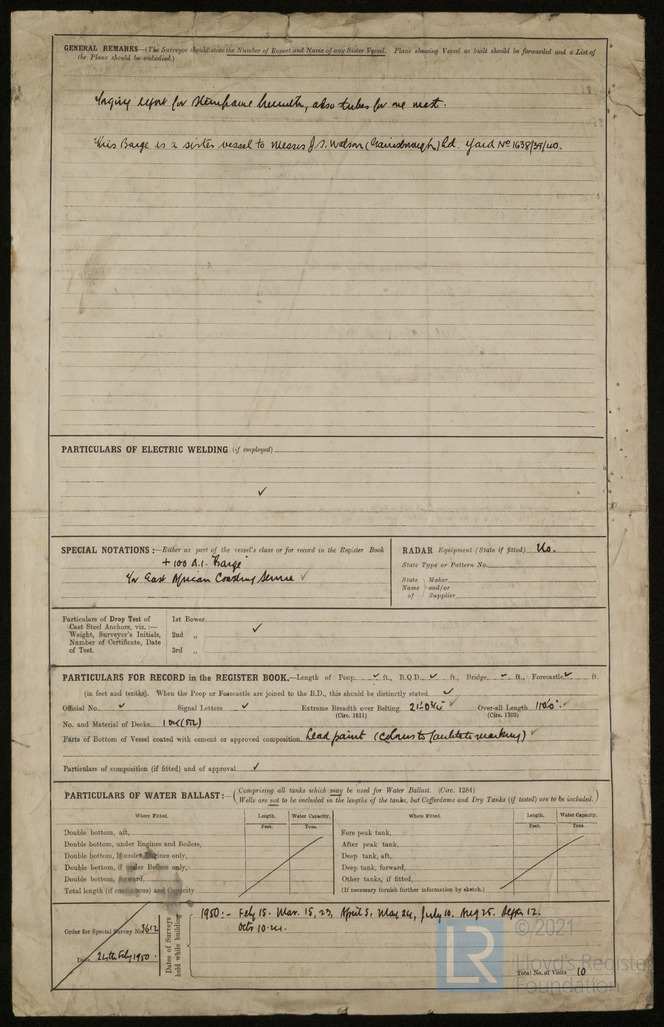 GENERAL REMARKS—(The Surveyor should state the Number of Report and Name of any Sister Vessel. Plans showing Vessel as built should be forwarded and a List of
the Plans should be embodied.)
Forging report for sternframe herewith, also tubes for one mast.
This Barge is a sister vessel to Messrs J.S. Watson (Gainsborough) Ld. Yard Nº 1638/39/40.
PARTICULARS OF ELECTRIC WELDING (if employed)
✓
SPECIAL NOTATIONS:—Either as part of the vessel's class or for record in the Register Book
+ 100 A.1. "Barge"
for East African Coasting Service ✓
RADAR Equipment (State if fitted) No.
State Type or Pattern No.
State Name of
Maker and/or Supplier
Particulars of Drop Test of
Cast Steel Anchors, viz. :—
Weight, Surveyor's Initials,
Number of Certificate, Date
of Test.
1st Bower
2nd „ ✓
3rd „
PARTICULARS FOR RECORD in the REGISTER BOOK.—Length of Poop ✓ ft., B.Q.D. ✓ ft., Bridge ✓ ft., Forecastle ✓ ft.
(in feet and tenths). When the Poop or Forecastle are joined to the B.D., this should be distinctly stated ✓
Official No. ✓ Signal Letters ✓ Extreme Breadth over Belting Over-all Length 110'0" ✓
(Circ. 1611) (Circ. 1703)
No. and Material of Decks 1 DK (Stl)
Parts of Bottom of Vessel coated with cement or approved composition Lead paint
Particulars of composition (if fitted) and of approval ✓
PARTICULARS OF WATER BALLAST:—(Comprising all tanks which may be used for Water Ballast. (Circ. 1284)
Wells are not to be included in the lengths of the tanks, but Cofferdams and Dry Tanks (if tested) are to be included.)
Where Fitted. Length. Water Capacity. Where Fitted. Length. Water Capacity.
Feet. Tons. Feet. Tons.
Double bottom, aft, Fore peak tank,
Double bottom, under Engines and Boilers, After peak tank,
Double bottom, if under Engines only, Deep tank, aft,
Double bottom, if under Boilers only, Deep tank, forward,
Double bottom, forward, Other tanks, if fitted,
Total length (if continuous) and Capacity (If necessary furnish further information by sketch.)
Order for Special Survey No. 3612
Date 24th Feby 1950
Dates of Surveys held while building
1950:- Feby 15. Mar. 15, 23, April 5, May 24, July 10. Aug 25. Septr 12.
Octr 10. 24.
Total No. of Visits 10
LR
© 2021
Lloyd's Register
Foundation